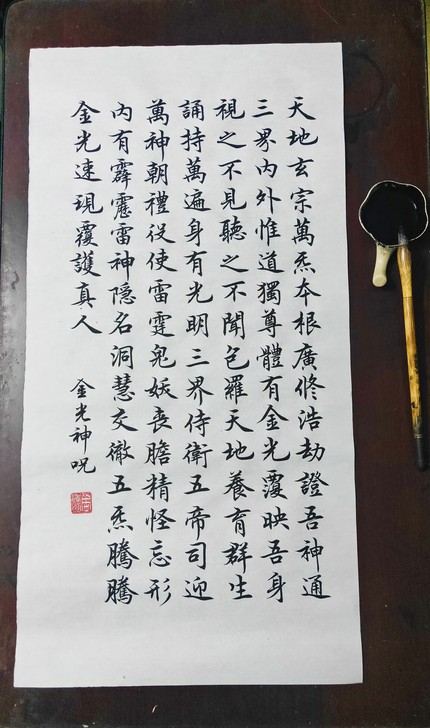 天地玄宗萬炁本根廣修浩劫證吾神通
三界内外惟道獨尊體有金光覆映吾身
視之不見聽之不聞包羅天地養育群生
誦持萬遍身有光明三界侍衛五帝司迎
萬神朝禮役使雷霆鬼妖喪膽精怪忘形
内有霹靂雷神隱名洞慧交徹五炁騰騰
金光速現覆護真人
金光神呪